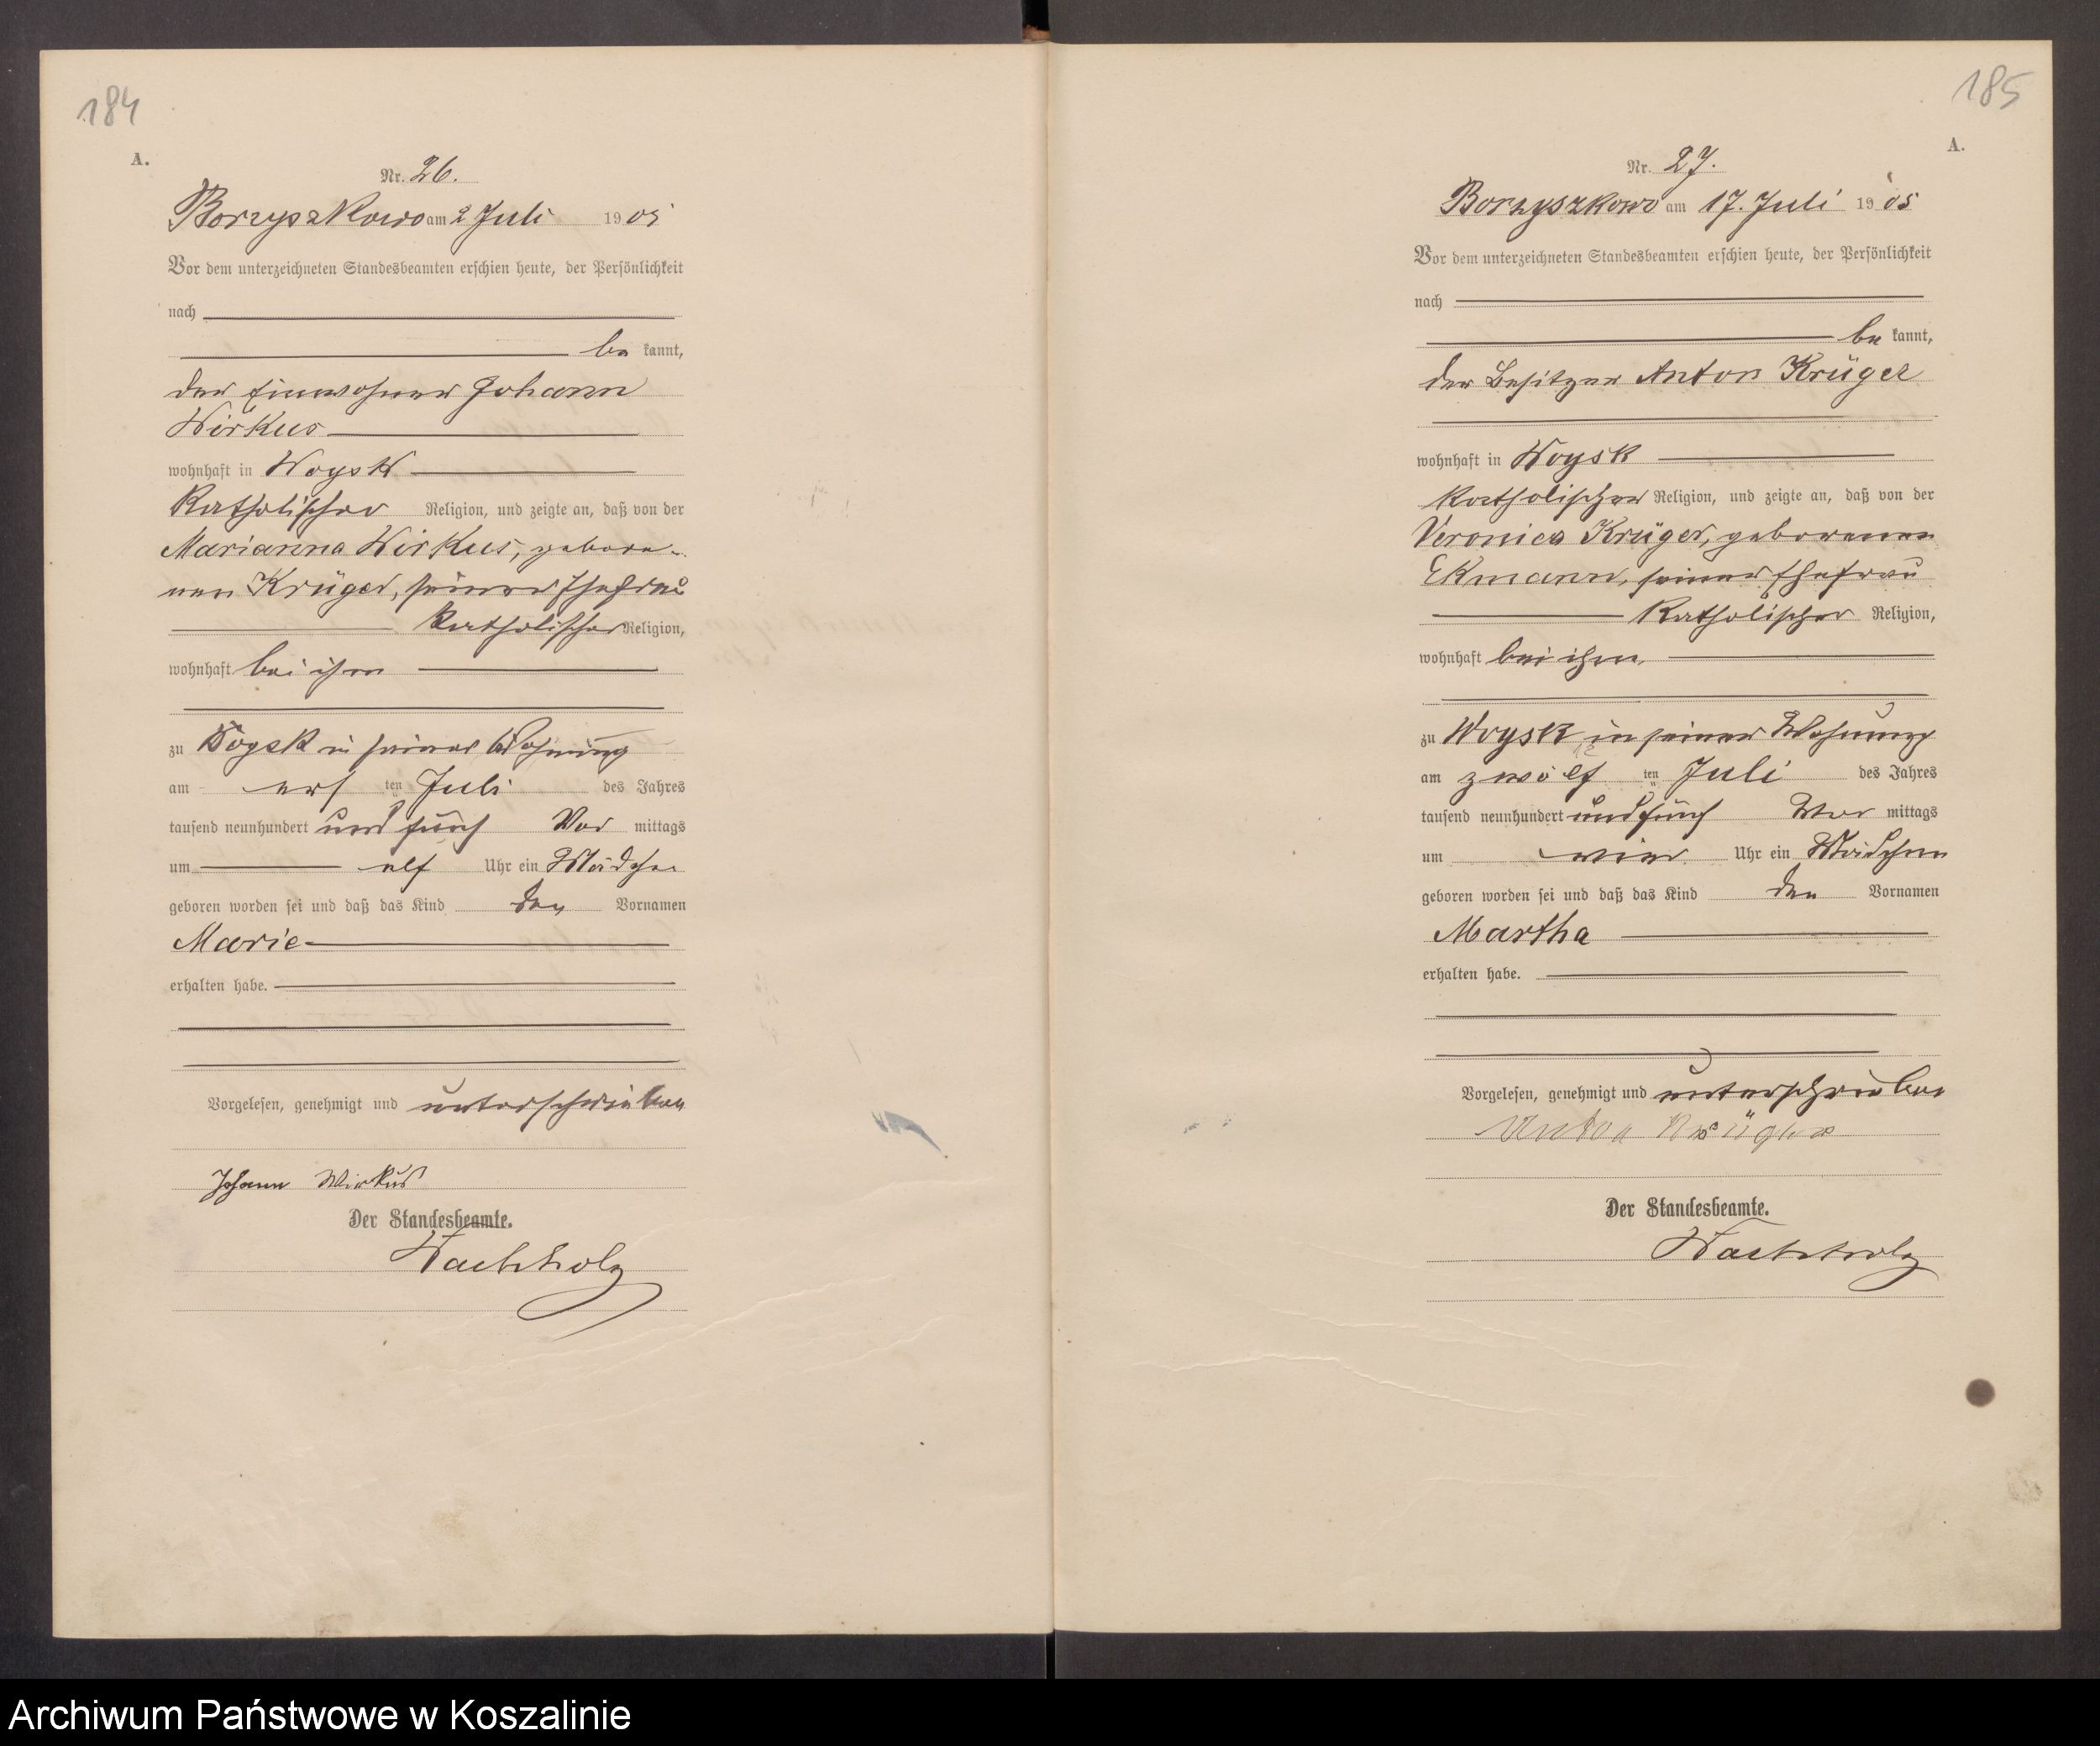 184
A.
Nr. 26.
Borzyszkowo am 2 Juli 1905
Vor dem unterzeichneten Standesbeamten erschien heute, der Persönlichkeit
nach
be kannt,
der Einwohner Johann
Wirkus
wohnhaft in Woysk
katholischer Religion, und zeigte an, daß von der
Marianna Wirkus, gebore-
nen Krüger, seiner Ehefrau
katholischer Religion,
wohnhaft bei ihm
zu Woysk in seiner Wohnung
am ers ten Juli des Jahres
tausend neunhundert und fünf Vor mittags
um elf Uhr ein Mädchen
geboren worden sei und daß das Kind den Vornamen
Marie
erhalten habe.
Vorgelesen, genehmigt und unterschrieben
Johann Wirkus
Der Standesbeamte.
Wachholz
185
A.
Nr. 27.
Borzyszkowo am 17. Juli 1905
Vor dem unterzeichneten Standesbeamten erschien heute, der Persönlichkeit
nach
be kannt,
der Besitzer Anton Krüger
wohnhaft in Woysk
katholischer Religion, und zeigte an, daß von der
Veronica Krüger, geborenen
Ekmann, seiner Ehefrau
katholischer Religion,
wohnhaft bei ihm
zu Woysk in seiner Wohnung
am zwölf ten Juli des Jahres
tausend neunhundert und fünf Vor mittags
um vier Uhr ein Mädchen
geboren worden sei und daß das Kind den Vornamen
Martha
erhalten habe.
Vorgelesen, genehmigt und unterschrieben
Anton Krüger
Der Standesbeamte.
Wachholz
Archiwum Państwowe w Koszalinie